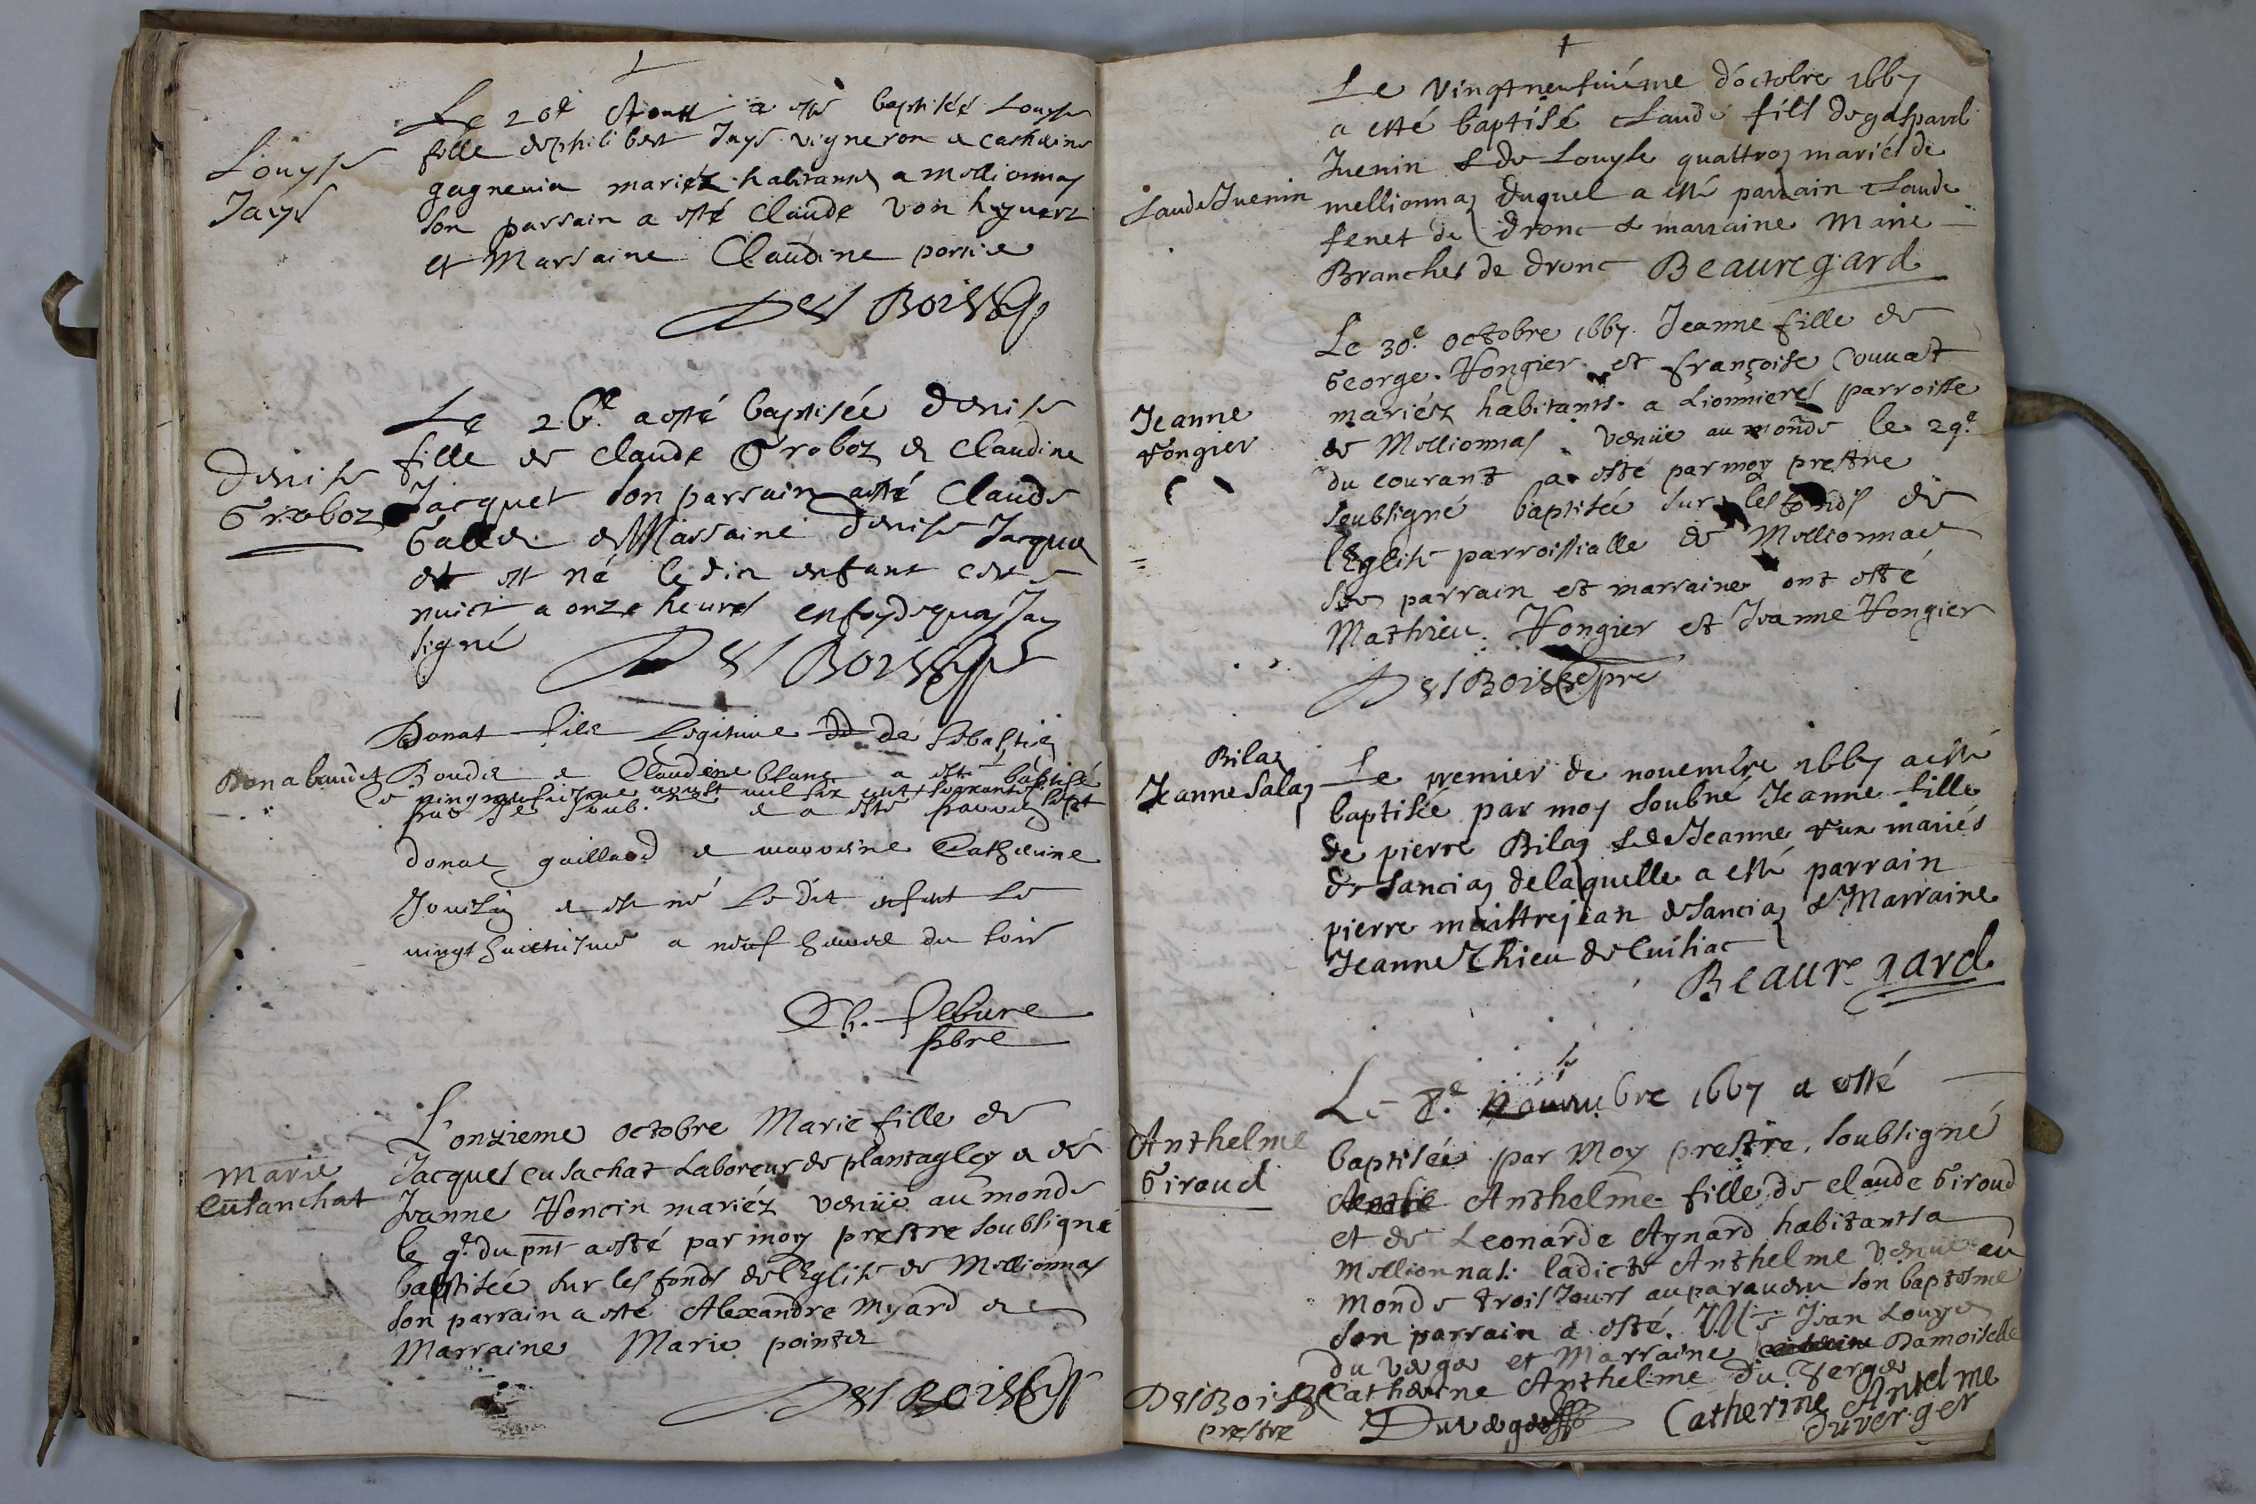 Le 20e Aoust a esté baptiséé Louyse
fille de philibert Jays vigneron & Catherine
mariéz habitants a Mellionnas
son parrain a esté Claude
et Marraine Claudine
Louyse
Jays
Le 26e a esté baptisée denise
fille de Claude Groboz & Claudine
Jacquet son parrain a esté Claude
& Marraine denise Jacquet
et est né ledit enfant cette
nuict a onze heures en foy de quoy J'ay
signé
Denise
Groboz
Donat fils Legitime de Sebastien
Boudet & Claudine blanc a esté baptisé
donat gaillard & marraine Catherine
& est né Ledit enfant le
vingt huictiesme a neuf heures du soir
pbre
L'onzieme octobre Marie fille de
Jacques Cusachat Laboreur de plantaglay & de
Jeanne Honcin mariéz venüe au monde
le 9e du pnt a esté par moy prestre soubsigné
baptisée sur les fonds de l'Eglise de Mellionnas
son parrain a esté Alexandre Myard &
Marraine Marie pointet
Marie
Cusanchat
Le vingt neufuiéme d'octobre 1667
a esté baptisé Claude fils de gaspard
Juenin & de Louyse quattroz mariés de
mellionnaz duquel a esté parrain Claude
fenet de dronc & marraine Marie
Branches de dronc Beauregard
Claude Juenin
Le 30e octobre 1667 Jeanne fille de
George Vongier et françoise Couuat
mariéz habitants a Lionnieres parroisse
de Mellionnas venüe au monde le 29e
du courant a esté par moy prestre
soubsigné baptisée sur les fonds de
l'Eglise parroissialle de Mellionnas
ses parrain et marraine ont esté
Mathieu Vongier et Jeanne Vongier
Jeanne
Vongier
Bilaz
Jeanne Salaz
Le premier de nouembre 1667 a esté
baptisée par moy soubné Jeanne fille
de pierre Bilaz & de Jeanne mariés
de Sanciaz de laquelle a esté parrain
pierre maistrejean de Sanciaz & Marraine
Jeanne Thieu de Cuisiac
Beauregard
Le 8e Nouembre 1667 a esté
baptisée par Moy prestre soubsigné
Anthelme fille de claude Giroud
et de Leonarde Aynard habitants a
Mellionnas ladicte Anthelme venüe au
Monde trois Jours auparauant son baptesme
son parrain a esté Jean Louys
du verger et Marraine Damoiselle
Catherine Anthelme du Verger
Anthelme
Giroud
DesBois
prestre
Duverger
Catherine Antelme
Duverger